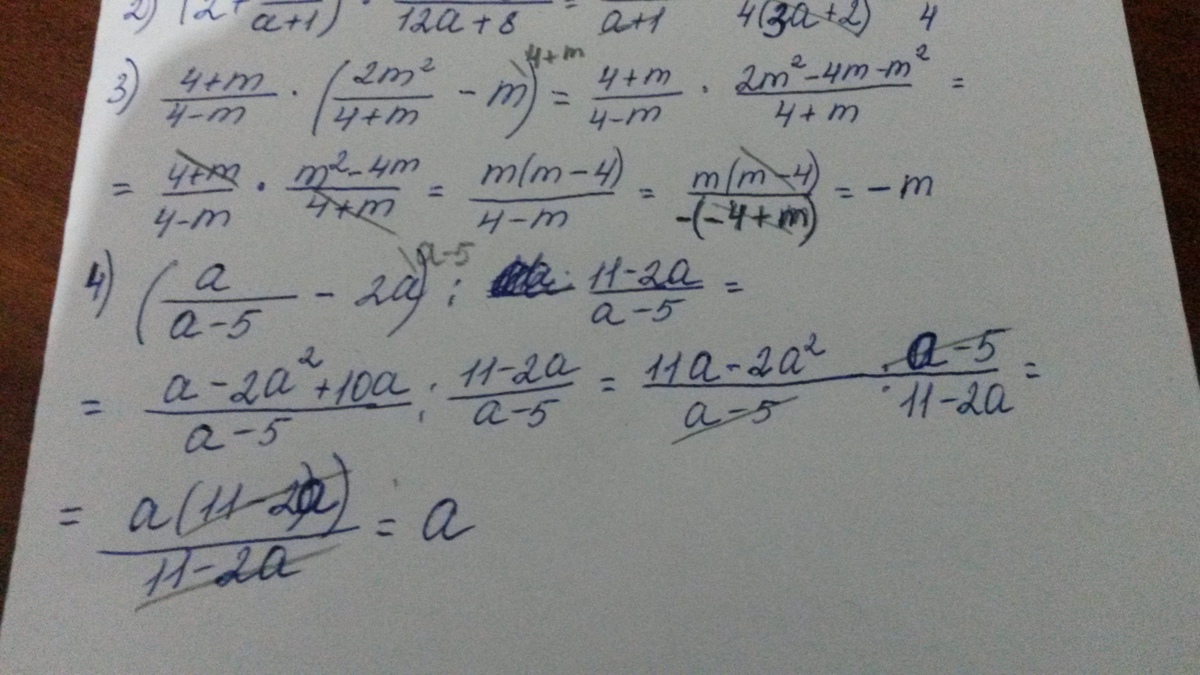 2) (2 + /(a+1)) · /(12a+8) = /(a+1) 4(3a+2) 4
3) (4+m)/(4-m) · (2m²/(4+m) - m)^(4+m) = (4+m)/(4-m) · (2m²-4m-m²)/(4+m) =
= (4+m)/(4-m) · (m²-4m)/(4+m) = m(m-4)/(4-m) = m(m-4)/(-(-4+m)) = -m
4) (a/(a-5) - 2a)^(a-5) : (11-2a)/(a-5) =
= (a-2a²+10a)/(a-5) : (11-2a)/(a-5) = (11a-2a²)/(a-5) · (a-5)/(11-2a) =
= a(11-2a)/(11-2a) = a